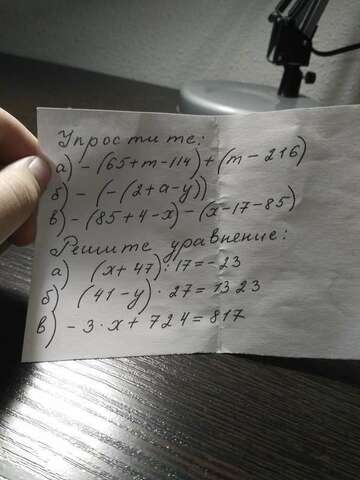 Упростите:
а) - (65+m-114)+(m-216)
б) - (-(2+a-y))
в) - (85+4-x)-(x-17-85)
Решите уравнение:
а) (x+47):17=-23
б) (41-y)·27=1323
в) -3·x+724=817